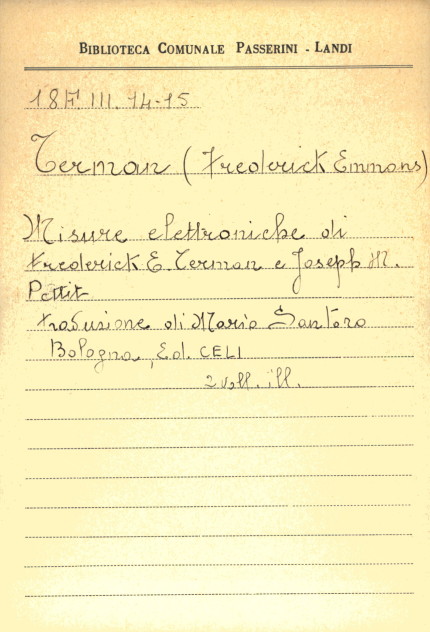 BIBLIOTECA COMUNALE PASSERINI - LANDI
18F. III. 14-15
Terman (Frederick Emmons)
Misure elettroniche di
Frederick E. Terman e Joseph M.
Pettit
traduzione di Mario Santoro
Bologna, Ed. CELI
2 voll. ill.